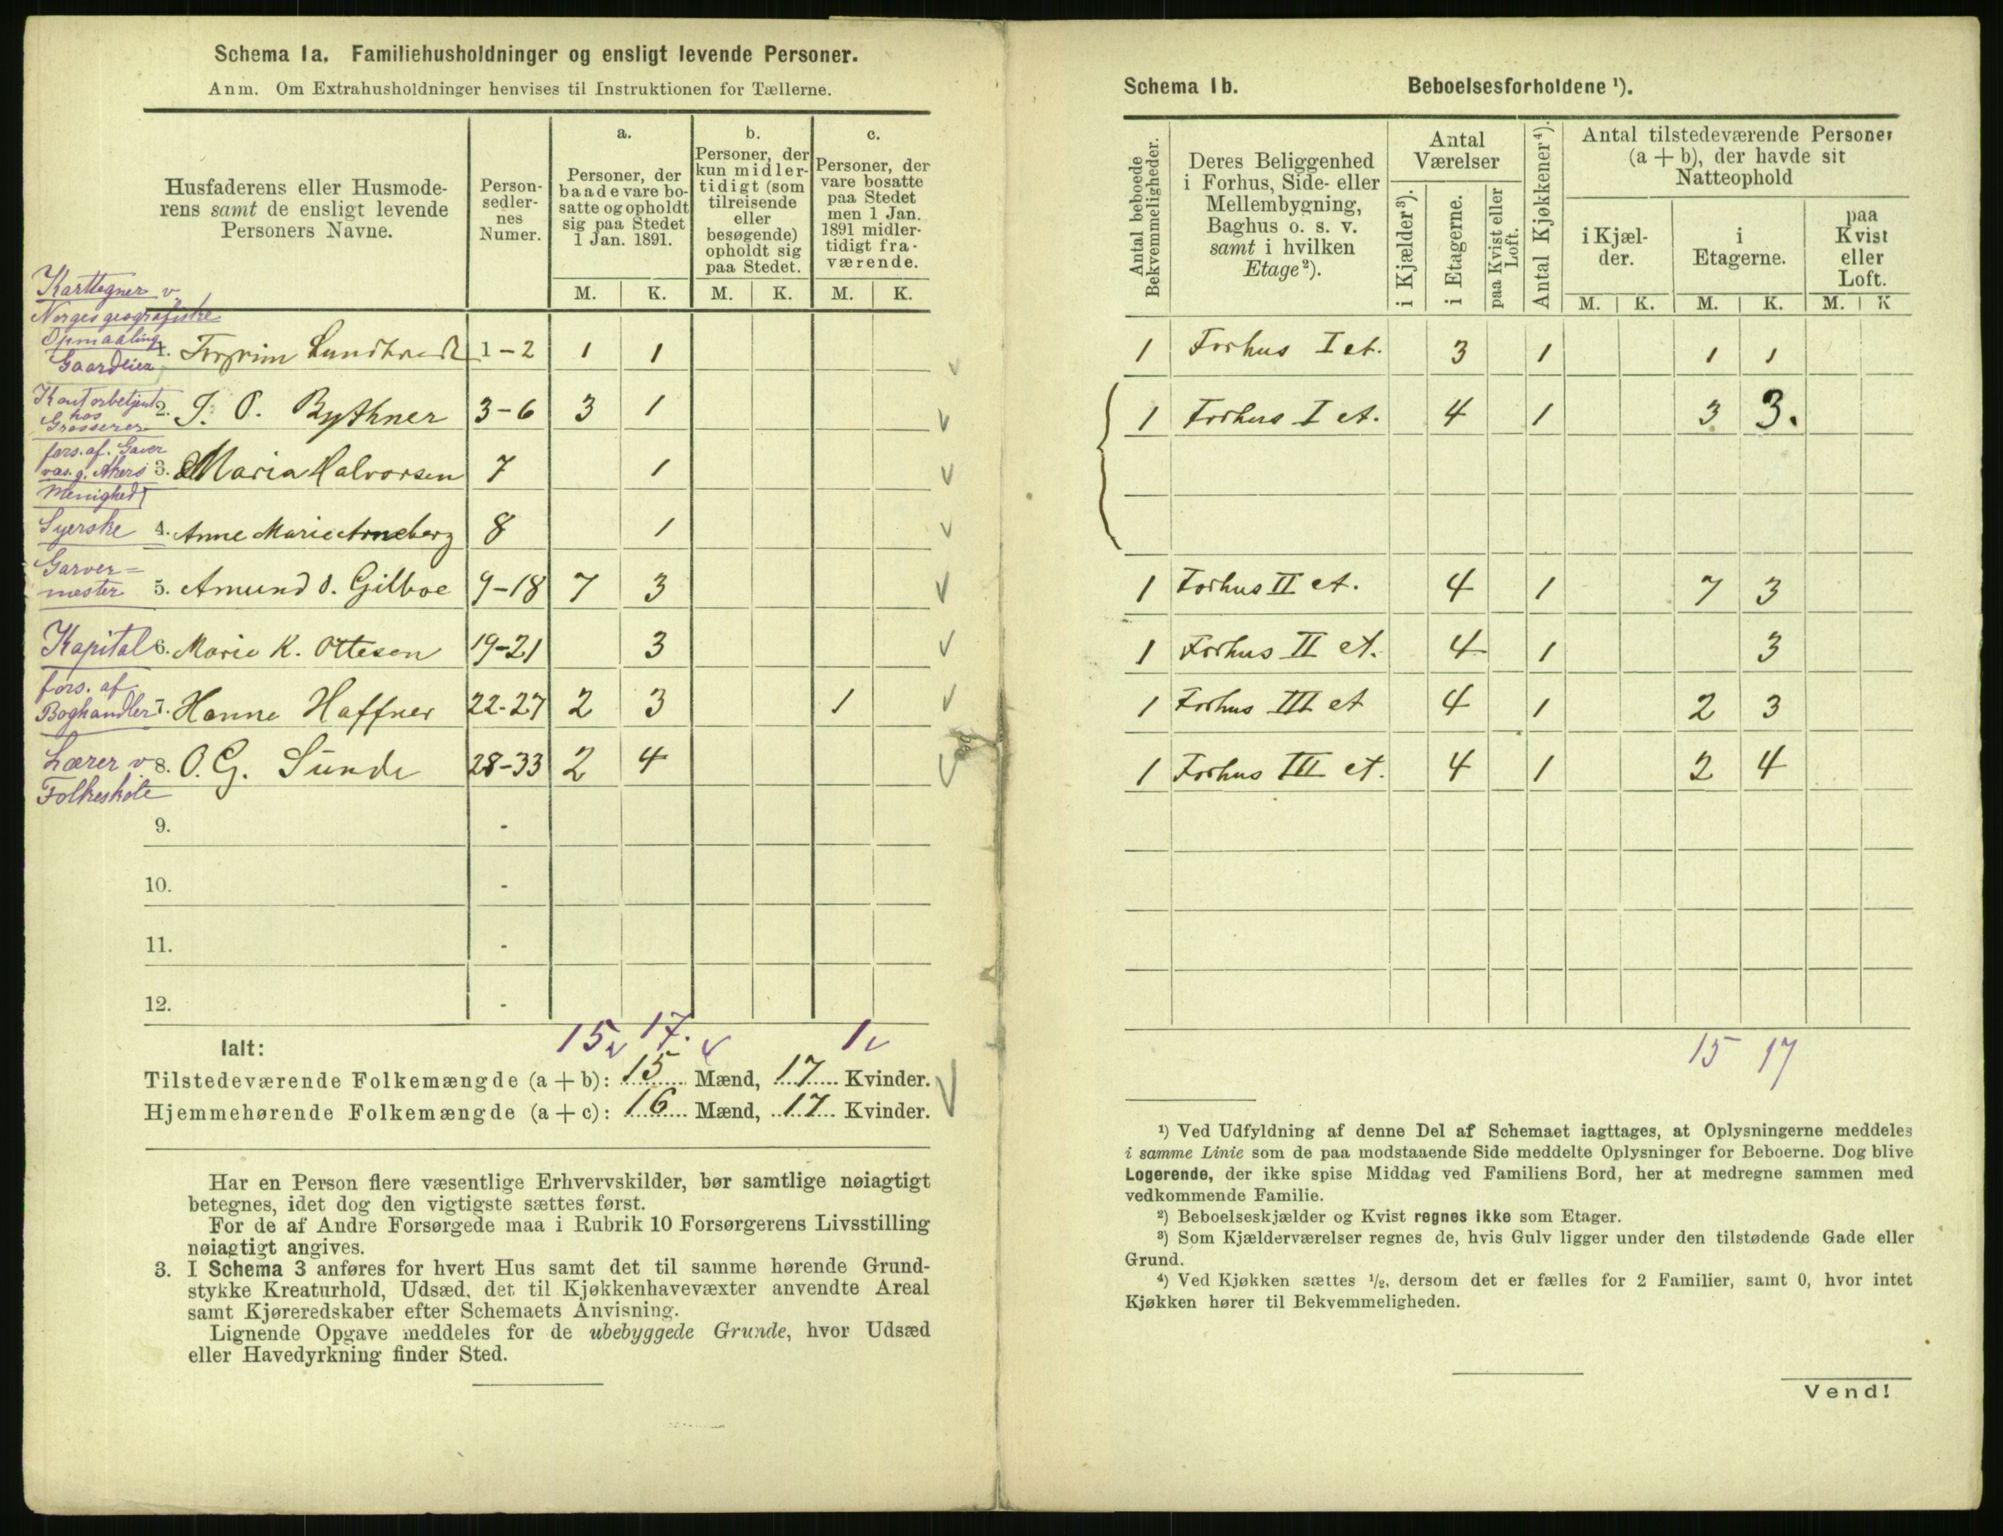 Schema 1a. Familiehusholdninger og ensligt levende Personer.
Anm. Om Extrahusholdninger henvises til Instruktionen for Tællerne.
Husfaderens eller Husmode-
rens samt de ensligt levende
Personers Navne.
Person-
sedler-
nes
Numer.
a.
Personer, der
baade vare bo-
satte og opholdt
sig paa Stedet
1 Jan. 1891.
b.
Personer, der
kun midler-
tidigt (som
tilreisende
eller
besøgende)
opholdt sig
paa Stedet.
c.
Personer, der
vare bosatte
paa Stedet
men 1 Jan.
1891 midler-
tidigt fra-
værende.
M. K. M. K. M. K.
Karttegner v
Norges geografiske
Opmaaling
Gaardeier
1. Torgrim Lundtvedt 1-2 1 1
Kontorbetjent
hos
Grosserer
2. J. O. Bythner 3-6 3 1
fors. af. Gaver
vas. g. Akers
Menighed
3. Maria Halvorsen 7 1
Syerske 4. Anne Marie Arneberg 8 1
Garver=
mester 5. Amund O. Gilboe 9-18 7 3
Kapital 6. Marie K. Ottesen 19-21 3
fors. af
Boghandler 7. Hanne Haffner 22-27 2 3 1
Lærer v 8. O. G. Sunde 28-33 2 4
Folkeskole
9. -
10. -
11. -
12. -
15 17. 1
Ialt:
Tilstedeværende Folkemængde (a + b): 15 Mænd, 17 Kvinder.
Hjemmehørende Folkemængde (a + c): 16 Mænd, 17 Kvinder.
Har en Person flere væsentlige Erhvervskilder, bør samtlige nøiagtigt
betegnes, idet dog den vigtigste sættes først.
For de af Andre Forsørgede maa i Rubrik 10 Forsørgerens Livsstilling
nøiagtigt angives.
3. I Schema 3 anføres for hvert Hus samt det til samme hørende Grund-
stykke Kreaturhold, Udsæd, det til Kjøkkenhavevæxter anvendte Areal
samt Kjøreredskaber efter Schemaets Anvisning.
Lignende Opgave meddeles for de ubebyggede Grunde, hvor Udsæd
eller Havedyrkning finder Sted.
Schema 1b. Beboelsesforholdene ¹).
Antal beboede
Bekvemmeligheder.
Deres Beliggenhed
i Forhus, Side- eller
Mellembygning,
Baghus o. s. v.
samt i hvilken
Etage²).
Antal
Værelser
i Kjælder³).
i Etagerne.
paa Kvist eller
Loft.
Antal Kjøkkener⁴).
Antal tilstedeværende Personer
(a + b), der havde sit
Natteophold
i Kjæl-
der.
i
Etagerne.
paa
Kvist
eller
Loft.
M. K. M. K. M. K
1 Forhus I et. 3 1 1 1
1 Forhus I et. 4 1 3 3.
1 Forhus II et. 4 1 7 3
1 Forhus II et. 4 1 3
1 Forhus III et 4 1 2 3
1 Forhus III et. 4 1 2 4
15 17
¹) Ved Udfyldning af denne Del af Schemaet iagttages, at Oplysningerne meddeles
i samme Linie som de paa modstaaende Side meddelte Oplysninger for Beboerne. Dog blive
Logerende, der ikke spise Middag ved Familiens Bord, her at medregne sammen med
vedkommende Familie.
²) Beboelseskjælder og Kvist regnes ikke som Etager.
³) Som Kjælderværelser regnes de, hvis Gulv ligger under den tilstødende Gade eller
Grund.
⁴) Ved Kjøkken sættes ¹/₂, dersom det er fælles for 2 Familier, samt 0, hvor intet
Kjøkken hører til Bekvemmeligheden.
Vend!